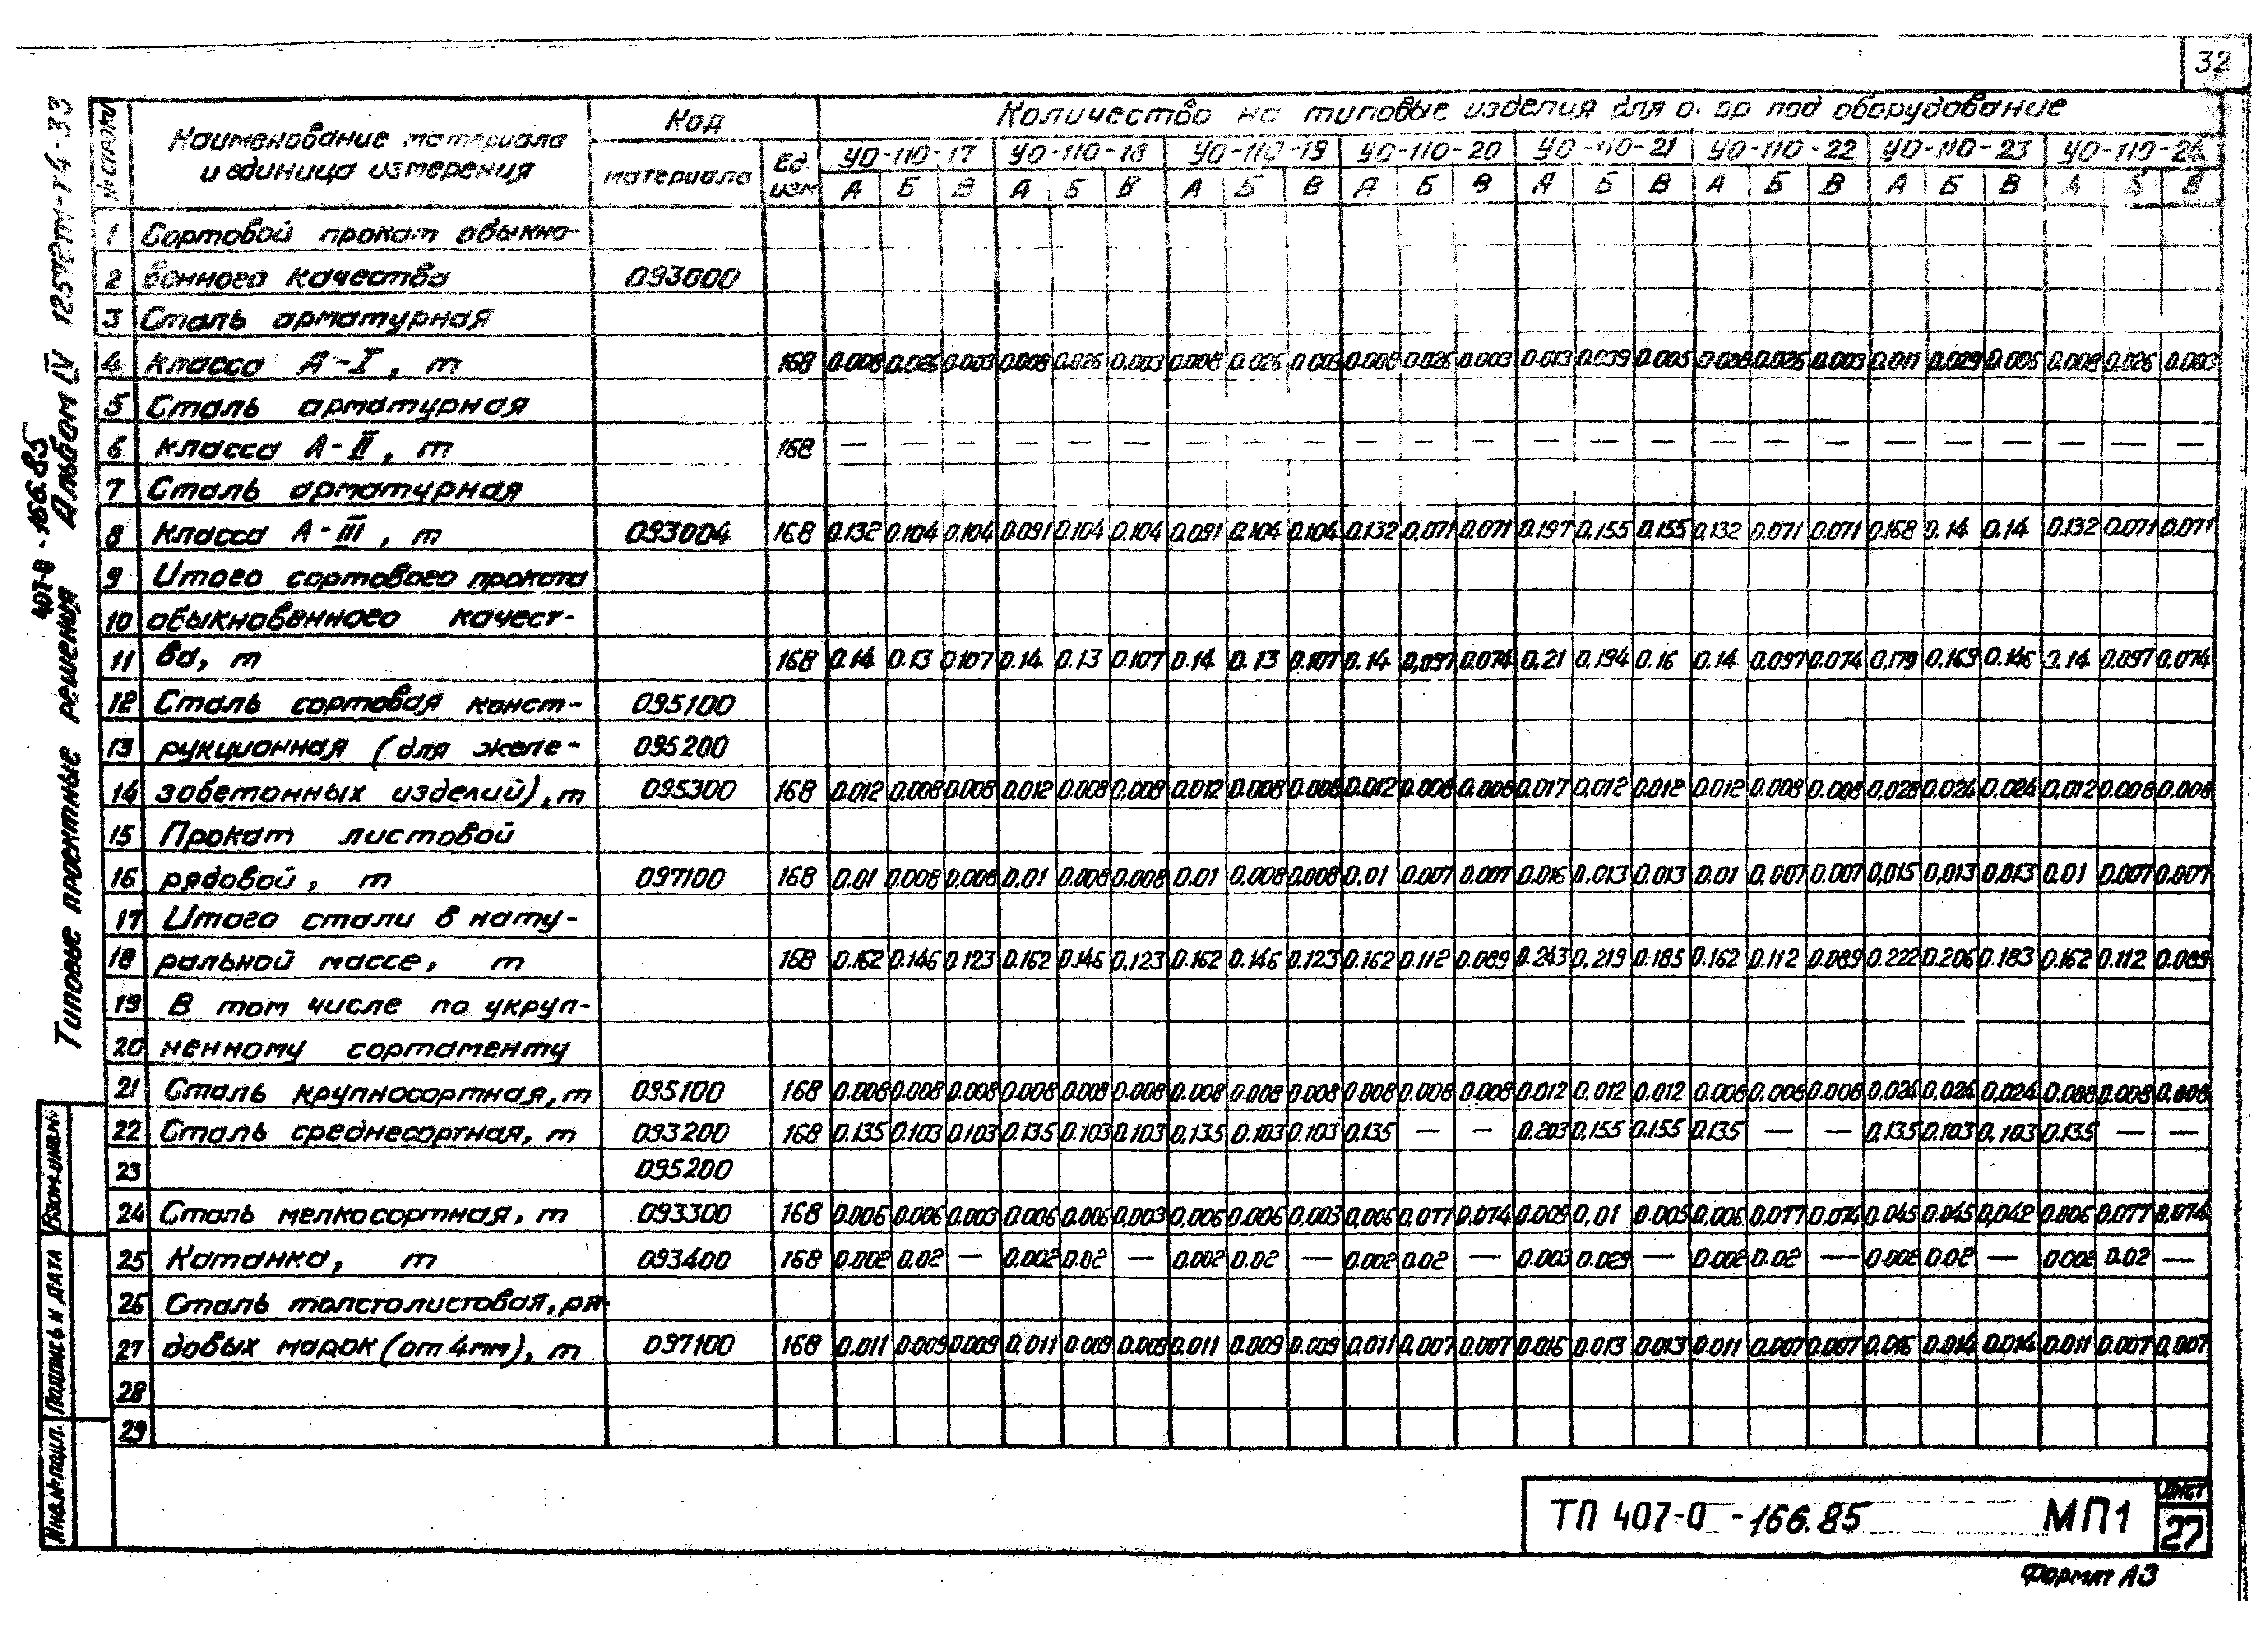 32
№ строки Наименование материала и единица измерения Код Количество на типовые изделия для о. ор под оборудование
материала Ед. изм УО-110-17 УО-110-18 УО-110-19 УО-110-20 УО-110-21 УО-110-22 УО-110-23 УО-110-24
А Б В А Б В А Б В А Б В А Б В А Б В А Б В А Б В
1 Сортовой прокат обыкно-
2 венного качества 093000
3 Сталь арматурная
4 класса А-I, т 168 0.008 0.026 0.003 0.008 0.026 0.003 0.008 0.026 0.003 0.008 0.026 0.003 0.013 0.039 0.005 0.008 0.026 0.003 0.011 0.029 0.006 0.008 0.026 0.003
5 Сталь арматурная
6 класса А-II, т 168 — — — — — — — — — — — — — — — — — — — — — — — —
7 Сталь арматурная
8 класса А-III, т 093004 168 0.132 0.104 0.104 0.091 0.104 0.104 0.091 0.104 0.104 0.132 0.071 0.071 0.197 0.155 0.155 0.132 0.071 0.071 0.168 0.14 0.14 0.132 0.071 0.071
9 Итого сортового проката
10 обыкновенного качест-
11 ва, т 168 0.14 0.13 0.107 0.14 0.13 0.107 0.14 0.13 0.107 0.14 0.097 0.074 0.21 0.194 0.16 0.14 0.097 0.074 0.179 0.169 0.146 0.14 0.097 0.074
12 Сталь сортовая конст- 095100
13 рукционная (для желе- 095200
14 зобетонных изделий), т 095300 168 0.012 0.008 0.008 0.012 0.008 0.008 0.012 0.008 0.008 0.012 0.008 0.008 0.017 0.012 0.012 0.012 0.008 0.008 0.028 0.024 0.024 0.012 0.008 0.008
15 Прокат листовой
16 рядовой, т 097100 168 0.01 0.008 0.008 0.01 0.008 0.008 0.01 0.008 0.008 0.01 0.007 0.007 0.016 0.013 0.013 0.01 0.007 0.007 0.015 0.013 0.013 0.01 0.007 0.007
17 Итого стали в нату-
18 ральной массе, т 168 0.162 0.146 0.123 0.162 0.146 0.123 0.162 0.146 0.123 0.162 0.112 0.089 0.243 0.219 0.185 0.162 0.112 0.089 0.222 0.206 0.183 0.162 0.112 0.089
19 В том числе по укруп-
20 ненному сортаменту
21 Сталь крупносортная, т 095100 168 0.008 0.008 0.008 0.008 0.008 0.008 0.008 0.008 0.008 0.008 0.008 0.008 0.012 0.012 0.012 0.008 0.008 0.008 0.024 0.024 0.024 0.008 0.008 0.008
22 Сталь среднесортная, т 093200 168 0.135 0.103 0.103 0.135 0.103 0.103 0.135 0.103 0.103 0.135 — — 0.203 0.155 0.155 0.135 — — 0.135 0.103 0.103 0.135 — —
23 095200
24 Сталь мелкосортная, т 093300 168 0.006 0.006 0.003 0.006 0.006 0.003 0.006 0.006 0.003 0.006 0.077 0.074 0.009 0.01 0.005 0.006 0.077 0.074 0.045 0.045 0.042 0.006 0.077 0.074
25 Катанка, т 093400 168 0.002 0.02 — 0.002 0.02 — 0.002 0.02 — 0.002 0.02 — 0.003 0.029 — 0.002 0.02 — 0.002 0.02 — 0.002 0.02 —
26 Сталь толстолистовая, ря-
27 довых марок (от 4мм), т 097100 168 0.011 0.009 0.009 0.011 0.009 0.009 0.011 0.009 0.009 0.011 0.007 0.007 0.016 0.013 0.013 0.011 0.007 0.007 0.016 0.014 0.014 0.011 0.007 0.007
28
29
ТП 407-0-166.85 МП1 Лист 27
Формат А3
Типовые проектные решения 407-0-166.85 Альбом IV 125
Взам.инв.№
Подпись и дата
Инв.№ подл.